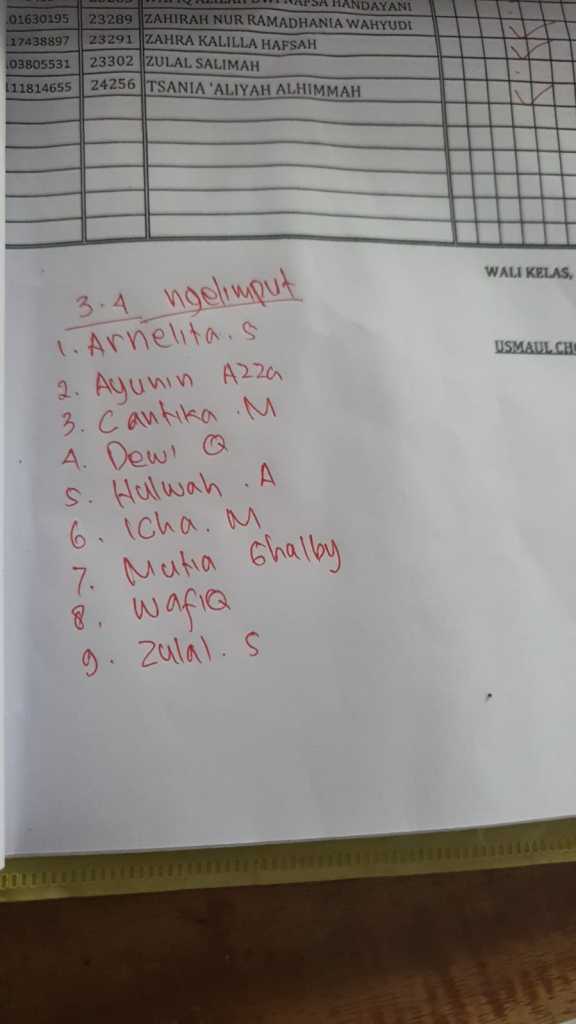 NAFSA HANDAYANI
01630195 23289 ZAHIRAH NUR RAMADHANIA WAHYUDI
17438897 23291 ZAHRA KALILLA HAFSAH
03805531 23302 ZULAL SALIMAH
111814655 24256 TSANIA 'ALIYAH ALHIMMAH
WALI KELAS,
USMAUL CH
3.4 ngelimput
1. Arnelita. S
2. Ayunin Azza
3. Cantika. M
4. Dewi Q
5. Halwah. A
6. Icha. M
7. Mutia Ghalby
8. WafiQ
9. Zulal. S